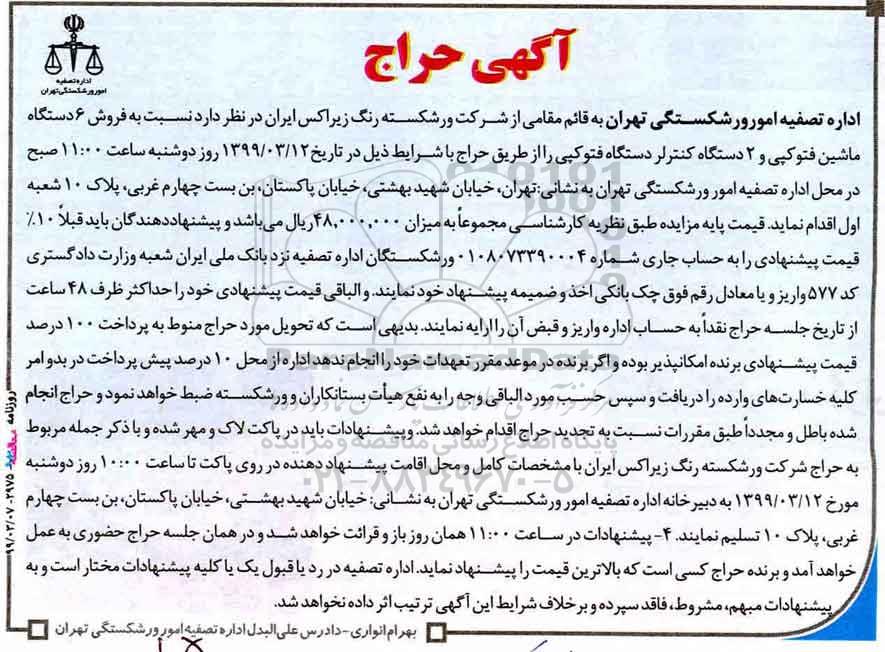 آگهی حراج
اداره تصفیه
امور ورشکستگی تهران
اداره تصفیه امور ورشکستگی تهران به قائم مقامی از شرکت ورشکسته رنگ زیراکس ایران در نظر دارد نسبت به فروش ۶ دستگاه
ماشین فتوکپی و ۲ دستگاه کنترلر دستگاه فتوکپی را از طریق حراج با شرایط ذیل در تاریخ ۱۳۹۹/۰۳/۱۲ روز دوشنبه ساعت ۱۱:۰۰ صبح
در محل اداره تصفیه امور ورشکستگی تهران به نشانی: تهران، خیابان شهید بهشتی، خیابان پاکستان، بن بست چهارم غربی، پلاک ۱۰ شعبه
اول اقدام نماید. قیمت پایه مزایده طبق نظریه کارشناسی مجموعاً به میزان ۴۸,۰۰۰,۰۰۰ ریال می‌باشد و پیشنهاددهندگان باید قبلاً ۱۰٪
قیمت پیشنهادی را به حساب جاری شماره ۰۱۰۸۰۷۳۳۹۰۰۰۴ ورشکستگان اداره تصفیه نزد بانک ملی ایران شعبه وزارت دادگستری
کد ۵۷۷ واریز و یا معادل رقم فوق چک بانکی اخذ و ضمیمه پیشنهاد خود نمایند. و الباقی قیمت پیشنهادی خود را حداکثر ظرف ۴۸ ساعت
از تاریخ جلسه حراج نقداً به حساب اداره واریز و قبض آن را ارایه نمایند. بدیهی است که تحویل مورد حراج منوط به پرداخت ۱۰۰ درصد
قیمت پیشنهادی برنده امکانپذیر بوده و اگر برنده در موعد مقرر تعهدات خود را انجام ندهد اداره از محل ۱۰ درصد پیش پرداخت در بدو امر
کلیه خسارت‌های وارده را دریافت و سپس حسب مورد الباقی وجه را به نفع هیأت بستانکاران و ورشکسته ضبط خواهد نمود و حراج انجام
شده باطل و مجدداً طبق مقررات نسبت به تجدید حراج اقدام خواهد شد. و پیشنهادات باید در پاکت لاک و مهر شده و با ذکر جمله مربوط
به حراج شرکت ورشکسته رنگ زیراکس ایران با مشخصات کامل و محل اقامت پیشنهاد دهنده در روی پاکت تا ساعت ۱۰:۰۰ روز دوشنبه
مورخ ۱۳۹۹/۰۳/۱۲ به دبیرخانه اداره تصفیه امور ورشکستگی تهران به نشانی: خیابان شهید بهشتی، خیابان پاکستان، بن بست چهارم
غربی، پلاک ۱۰ تسلیم نمایند. ۴- پیشنهادات در ساعت ۱۱:۰۰ همان روز باز و قرائت خواهد شد و در همان جلسه حراج حضوری به عمل
خواهد آمد و برنده حراج کسی است که بالاترین قیمت را پیشنهاد نماید. اداره تصفیه در رد یا قبول یک یا کلیه پیشنهادات مختار است و به
پیشنهادات مبهم، مشروط، فاقد سپرده و برخلاف شرایط این آگهی ترتیب اثر داده نخواهد شد.
بهرام انواری - دادرس علی البدل اداره تصفیه امور ورشکستگی تهران
ParsNamadData
پایگاه اطلاع رسانی مناقصه و مزایده
۰۲۱-۸۸۳۴۹۶۷۰-۵
روزنامه ۲۹۷۵ - ۹۹/۰۳/۰۷